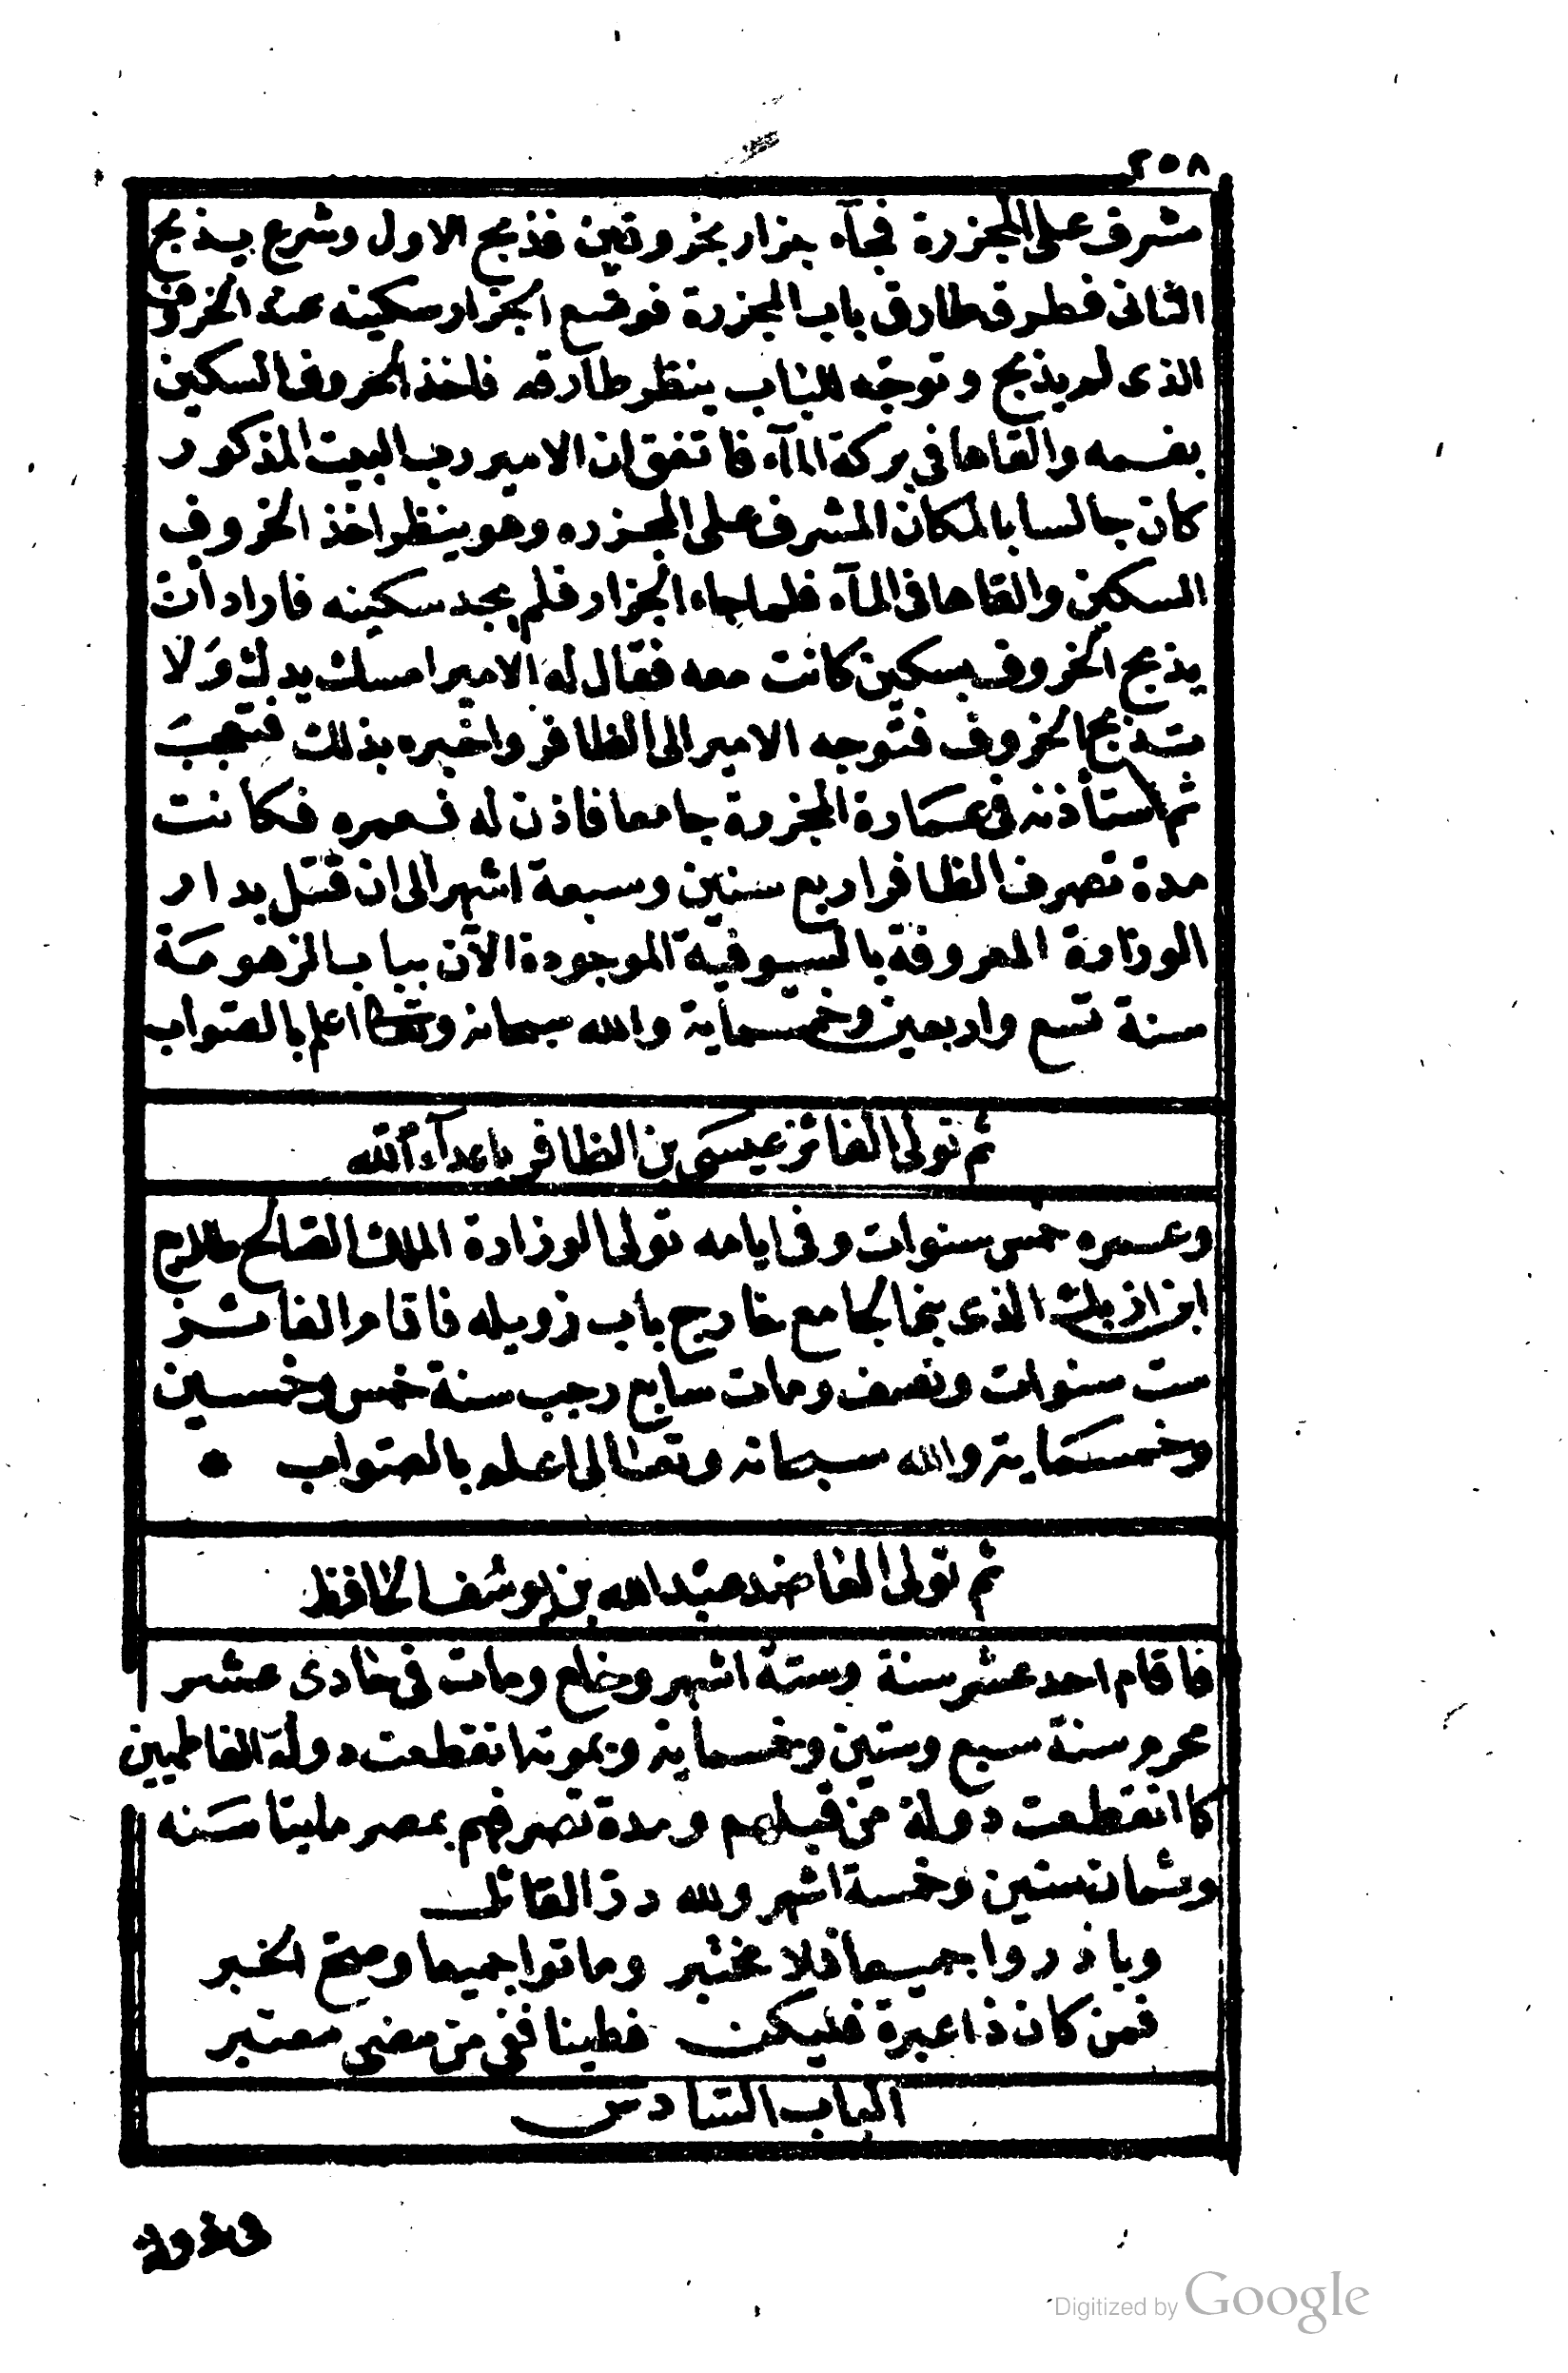 ٢٥٨
مشرف على المجزرة فجآء جزار بخروفين فذبح الاول وشرع يذبح
الثانى فطرق طارق باب المجزرة فوضع الجزار سكينه عند الخروف
الذى لم يذبح وتوجّه للباب ينظر طارقه فاخذ الخروف السكين
بفمه والقاها فى بركة المآء فاتفق ان الامير رب البيت المذكور
كان جالسا بالمكان المشرف على المجزره وهو ينظر اخذ الخروف
السكين والقاها فى المآء فلما جاء الجزار فلم يجد سكينه فاراد ان
يذبح الخروف بسكين كانت معه فقال له الامير امسك يدك وَلا
تذبح الخروف فتوجه الامير الى الظافر واخبره بذلك فتعجبَ
ثم استأذنه فى عمَارة المجزرة جامعا فاذن له فعمره فكانت
مدة تصرف الظافر اربع سنين وسبعة اشهر الى ان قتل بدار
الوزارة المعروفة بالسيوفية الموجودة الآن بباب الزهومَة
سنة تسع واربعين وخمسماية والله سبحانه وتعالى اعلم بالصواب
ثم تولى الفائز عيسَى بن الظافر باعدآء الله
وعمره خمس سنوات وفى ايامه تولى الوزارة الملك الصالح طلايع
ابن ازيك الذى بنا الجامع خارج باب زويله فاقام الفائز
ست سنوات ونصف ومات سابع رجب سنة خمس وخمسين
وخمسمَاية والله سبحانه وتعالى اعلم بالصواب *
ثم تولى العاضد عبد الله بن يوسُف الحافظ
فاقام احد عشر سنة وستة اشهر وخلع ومات فى حادى عشر
محرم سنة سبع وستين وخمسماية وبموته انقطعت دولة الفاطميين
كما انقطعت دولة من قبلهم ومدة تصرفهم بمصر مايتا سَنه
وثمان سنين وخمسة اشهر ولله در القائل
وباذروا جميعا فلا مخبر وماتوا جميعا وصح الخبر
فمن كان ذا عبرة فليكن فطينا ففى من مضى معتبر
الباب السَادس
Digitized by Google